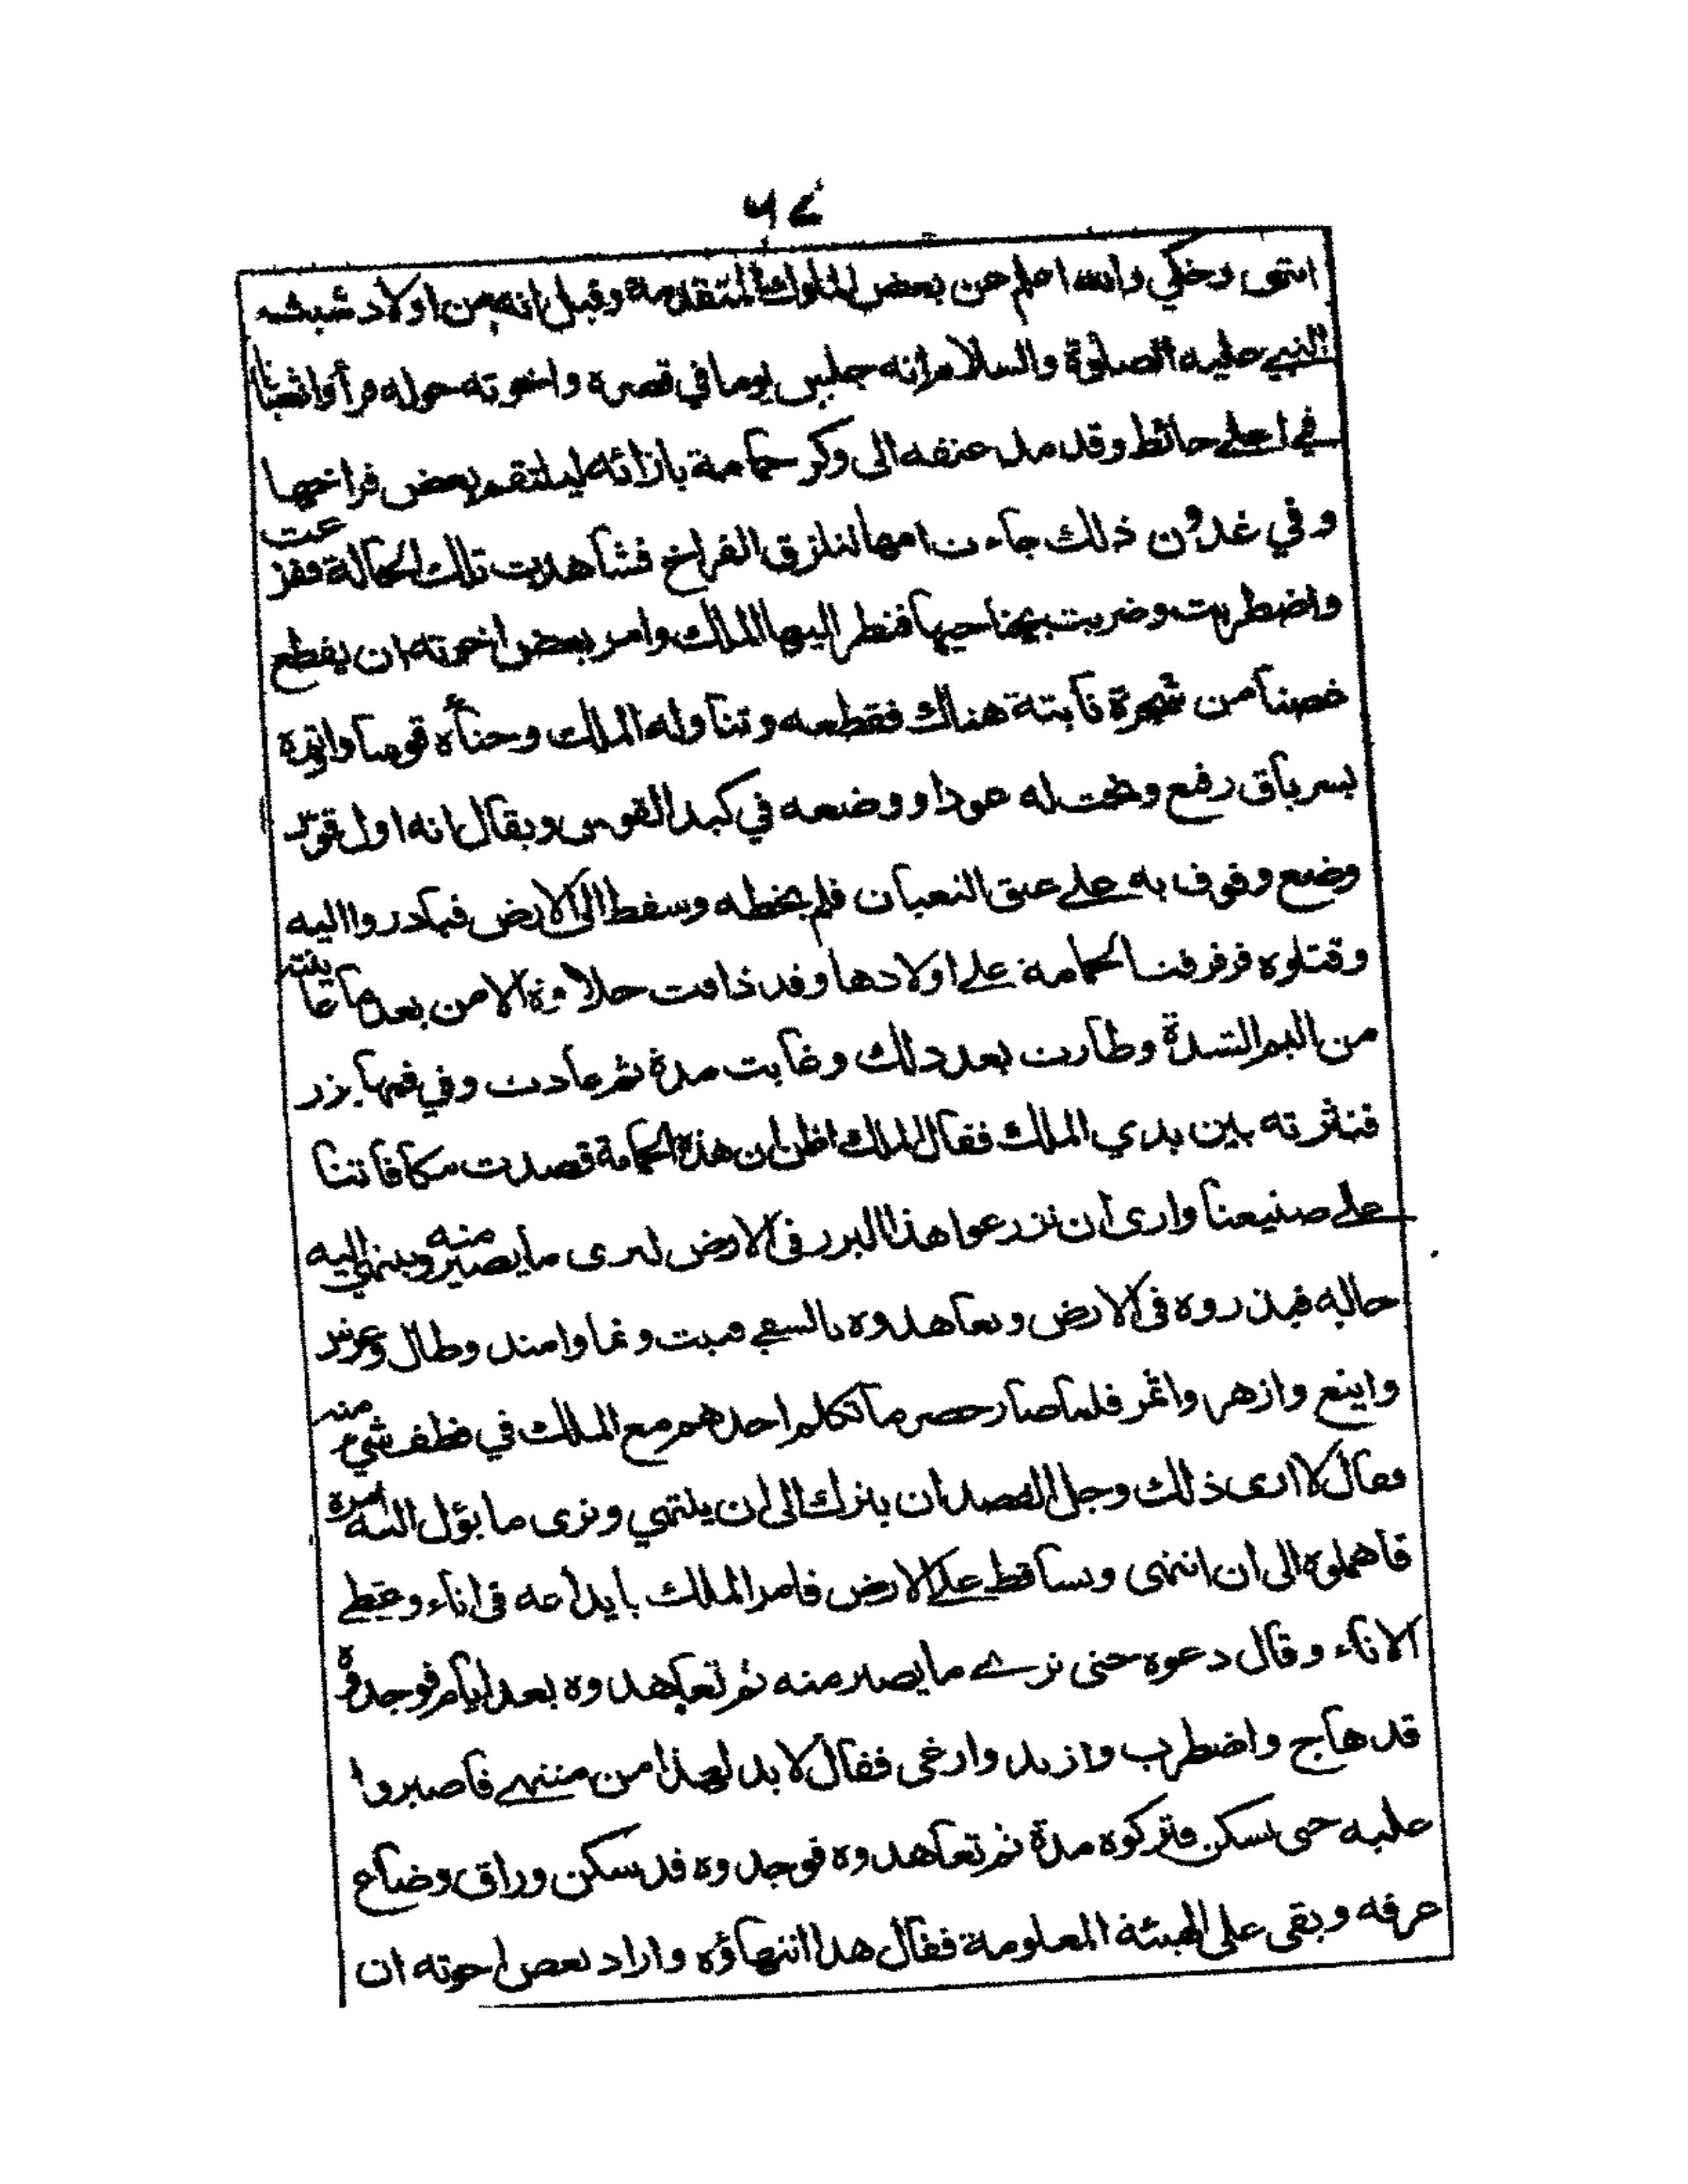 ٦٤
انتهى وحكي والله اعلم عن بعض الملوك المتقدمة وقيل انه من اولاد شيث
النبي عليه الصلوة والسلام انه جلس يوما في قصره واخوته حوله فرأوا ثعبانا
في اعلى حائط وقد مد عنقه الى وكر حمامة بازائه ليلتقم بعض فراخها
وفي غدون ذلك جاءت امها لتزق الفراخ فشاهدت تلك الحالة ففزعت
واضطربت وضربت بجناحيها فنظر اليها الملك وامر بعض اخوته ان يقطع
غصنا من شجرة نابتة هناك فقطعه وتناوله الملك وحناه قوسا واوتره
بسرياق رفع ونحت له عودا ووضعه في كبد القوس ويقال انه اول قوس
وضع وفوف به على عنق الثعبان فلم يخطه وسقط الى الارض فبادروا اليه
وقتلوه فرفرفت الحمامة على اولادها وقد ذاقت حلاوة الامن بعد ما عاينته
من اليم الشدة وطارت بعد ذلك وغابت مدة ثم عادت وفي فمها بزر
فنثرته بين يدي الملك فقال الملك اظن ان هذه الحمامة قصدت مكافاتنا
على صنيعنا وارى ان تزرعوا هذا البزر في الارض لنرى ما يصير منه وينتهي اليه
حاله فبذروه في الارض وتعاهدوه بالسقي فنبت ونما وامتد وطال وعرش
واينع وازهر واثمر فلما صار حصرما تكلم احدهم مع الملك في قطف شيء منه
فقال لا ارى ذلك وجل القصد ان يترك الى ان ينتهي ونرى ما يؤل اليه امره
فاهملوه الى ان انتهى وتساقط على الارض فامر الملك بايداعه في اناء وغطي
الاناء وقال دعوه حتى نرى ما يصير منه ثم تعاهدوه بعد ايام فوجدوه
قد هاج واضطرب وازبد وارغى فقال لا بد لهذا من منتهى فاصبروا
عليه حتى يسكن فتركوه مدة ثم تعاهدوه فوجدوه قد سكن وراق وضاع
عرفه وبقى على الهيئة المعلومة فقال هذا انتهاؤه واراد بعض اخوته ان